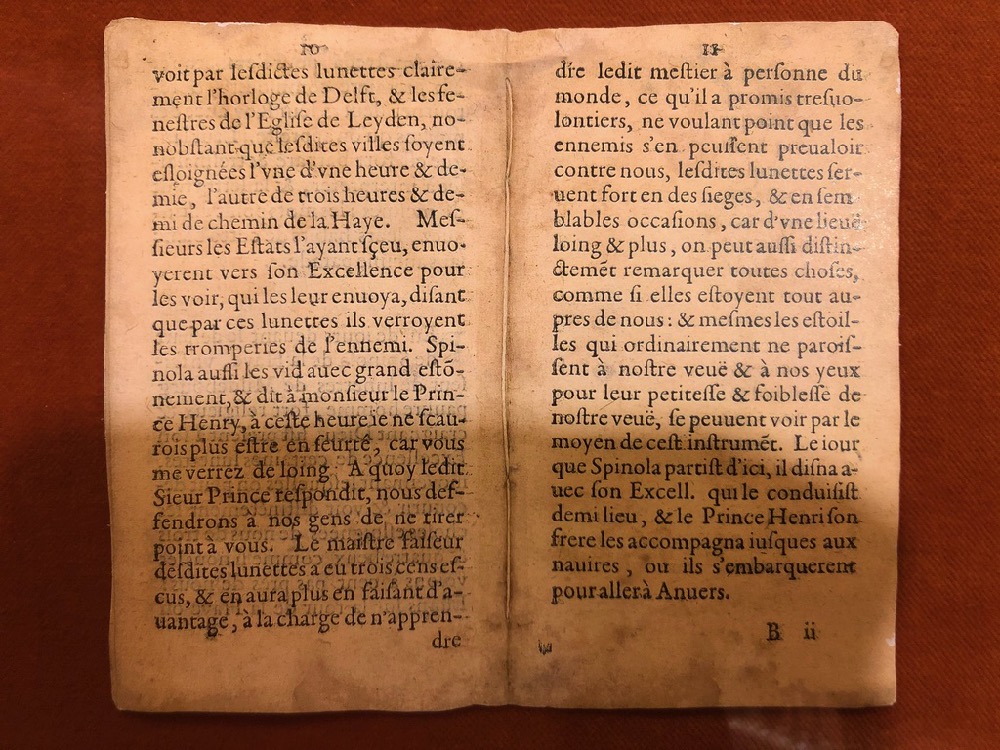 10
voit par leſdictes lunettes claire-
ment l'horloge de Delft, & les fe-
neſtres de l'Egliſe de Leyden, no-
nobſtant que leſdites villes ſoyent
eſloignées l'vne d'vne heure & de-
mie, l'autre de trois heures & de-
mi de chemin de la Haye. Meſ-
ſieurs les Eſtats l'ayant ſçeu, enuo-
yerent vers ſon Excellence pour
les voir, qui les leur enuoya, diſant
que par ces lunettes ils verroyent
les tromperies de l'ennemi. Spi-
nola auſſi les vid auec grand eſtõ-
nement, & dit à monſieur le Prin-
ce Henry, à ceſte heure ie ne ſcau-
rois plus eſtre en ſeurté, car vous
me verrez de loing. A quoy ledit
Sieur Prince reſpondit, nous def-
fendrons à nos gens de ne tirer
point à vous. Le maiſtre faiſeur
deſdites lunettes a eu trois cens eſ-
cus, & en aura plus en faiſant d'a-
uantage, à la charge de n'appren-
dre
11
dre ledit meſtier à perſonne du
monde, ce qu'il a promis treſuo-
lontiers, ne voulant point que les
ennemis s'en peuſſent preualoir
contre nous, leſdites lunettes ſer-
uent fort en des ſieges, & en ſem
blables occaſions, car d'vne lieuë
loing & plus, on peut auſſi diſtin-
ctemẽt remarquer toutes choſes,
comme ſi elles eſtoyent tout au-
pres de nous: & meſmes les eſtoil-
les qui ordinairement ne paroiſ-
ſent à noſtre veuë & à nos yeux
pour leur petiteſſe & foibleſſe de
noſtre veuë, ſe peuuent voir par le
moyen de ceſt inſtrumẽt. Le iour
que Spinola partiſt d'ici, il diſna a-
uec ſon Excell. qui le conduiſiſt
demi lieu, & le Prince Henri ſon
frere les accompagna iuſques aux
nauires, ou ils s'embarquerent
pour aller à Anuers.
B ii